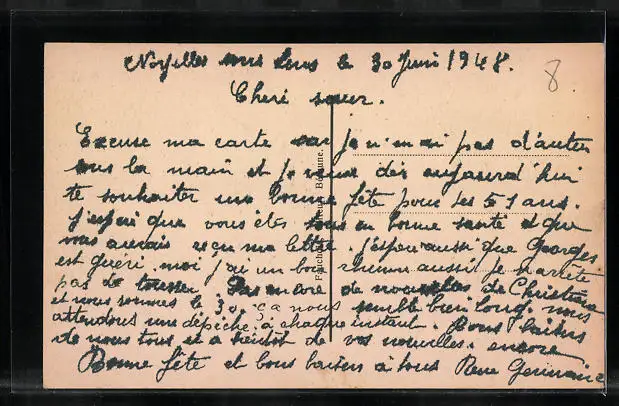 Noyelles sous Lens le 30 Juin 1948.
8
Cheré sœur.
Excuse ma carte car je n'en ai pas d'autre
sous la main et je veux dès aujourd'hui
te souhaiter une bonne fête pour tes 51 ans.
J'espère que vous êtes tous en bonne santé et que
vous aurais reçu ma lettre. J'espère aussi que Georges
est guéri. moi j'ai un bon rhume aussi je n'arrête
pas de tousser. Pas encore de nouvelles de Christiane
et nous sommes le 30. ça nous semble bien long. nous
attendons une dépêche à chaque instant. Bons baisers
de nous tous et a bientôt de vos nouvelles. encore
Bonne fête et bons baisers à tous Rene Germaine
Béthune.